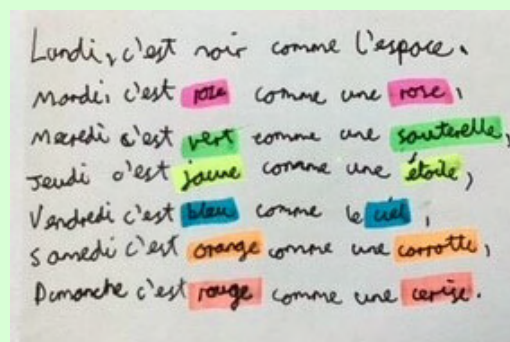 Lundi, c'est noir comme l'espace.
Mardi, c'est rose comme une rose,
Mecredi c'est vert comme une sauterelle,
Jeudi c'est jaune comme une étoile,
Vendredi c'est bleu comme le ciel,
Samedi c'est orange comme une carrotte,
Dimanche c'est rouge comme une cerise.